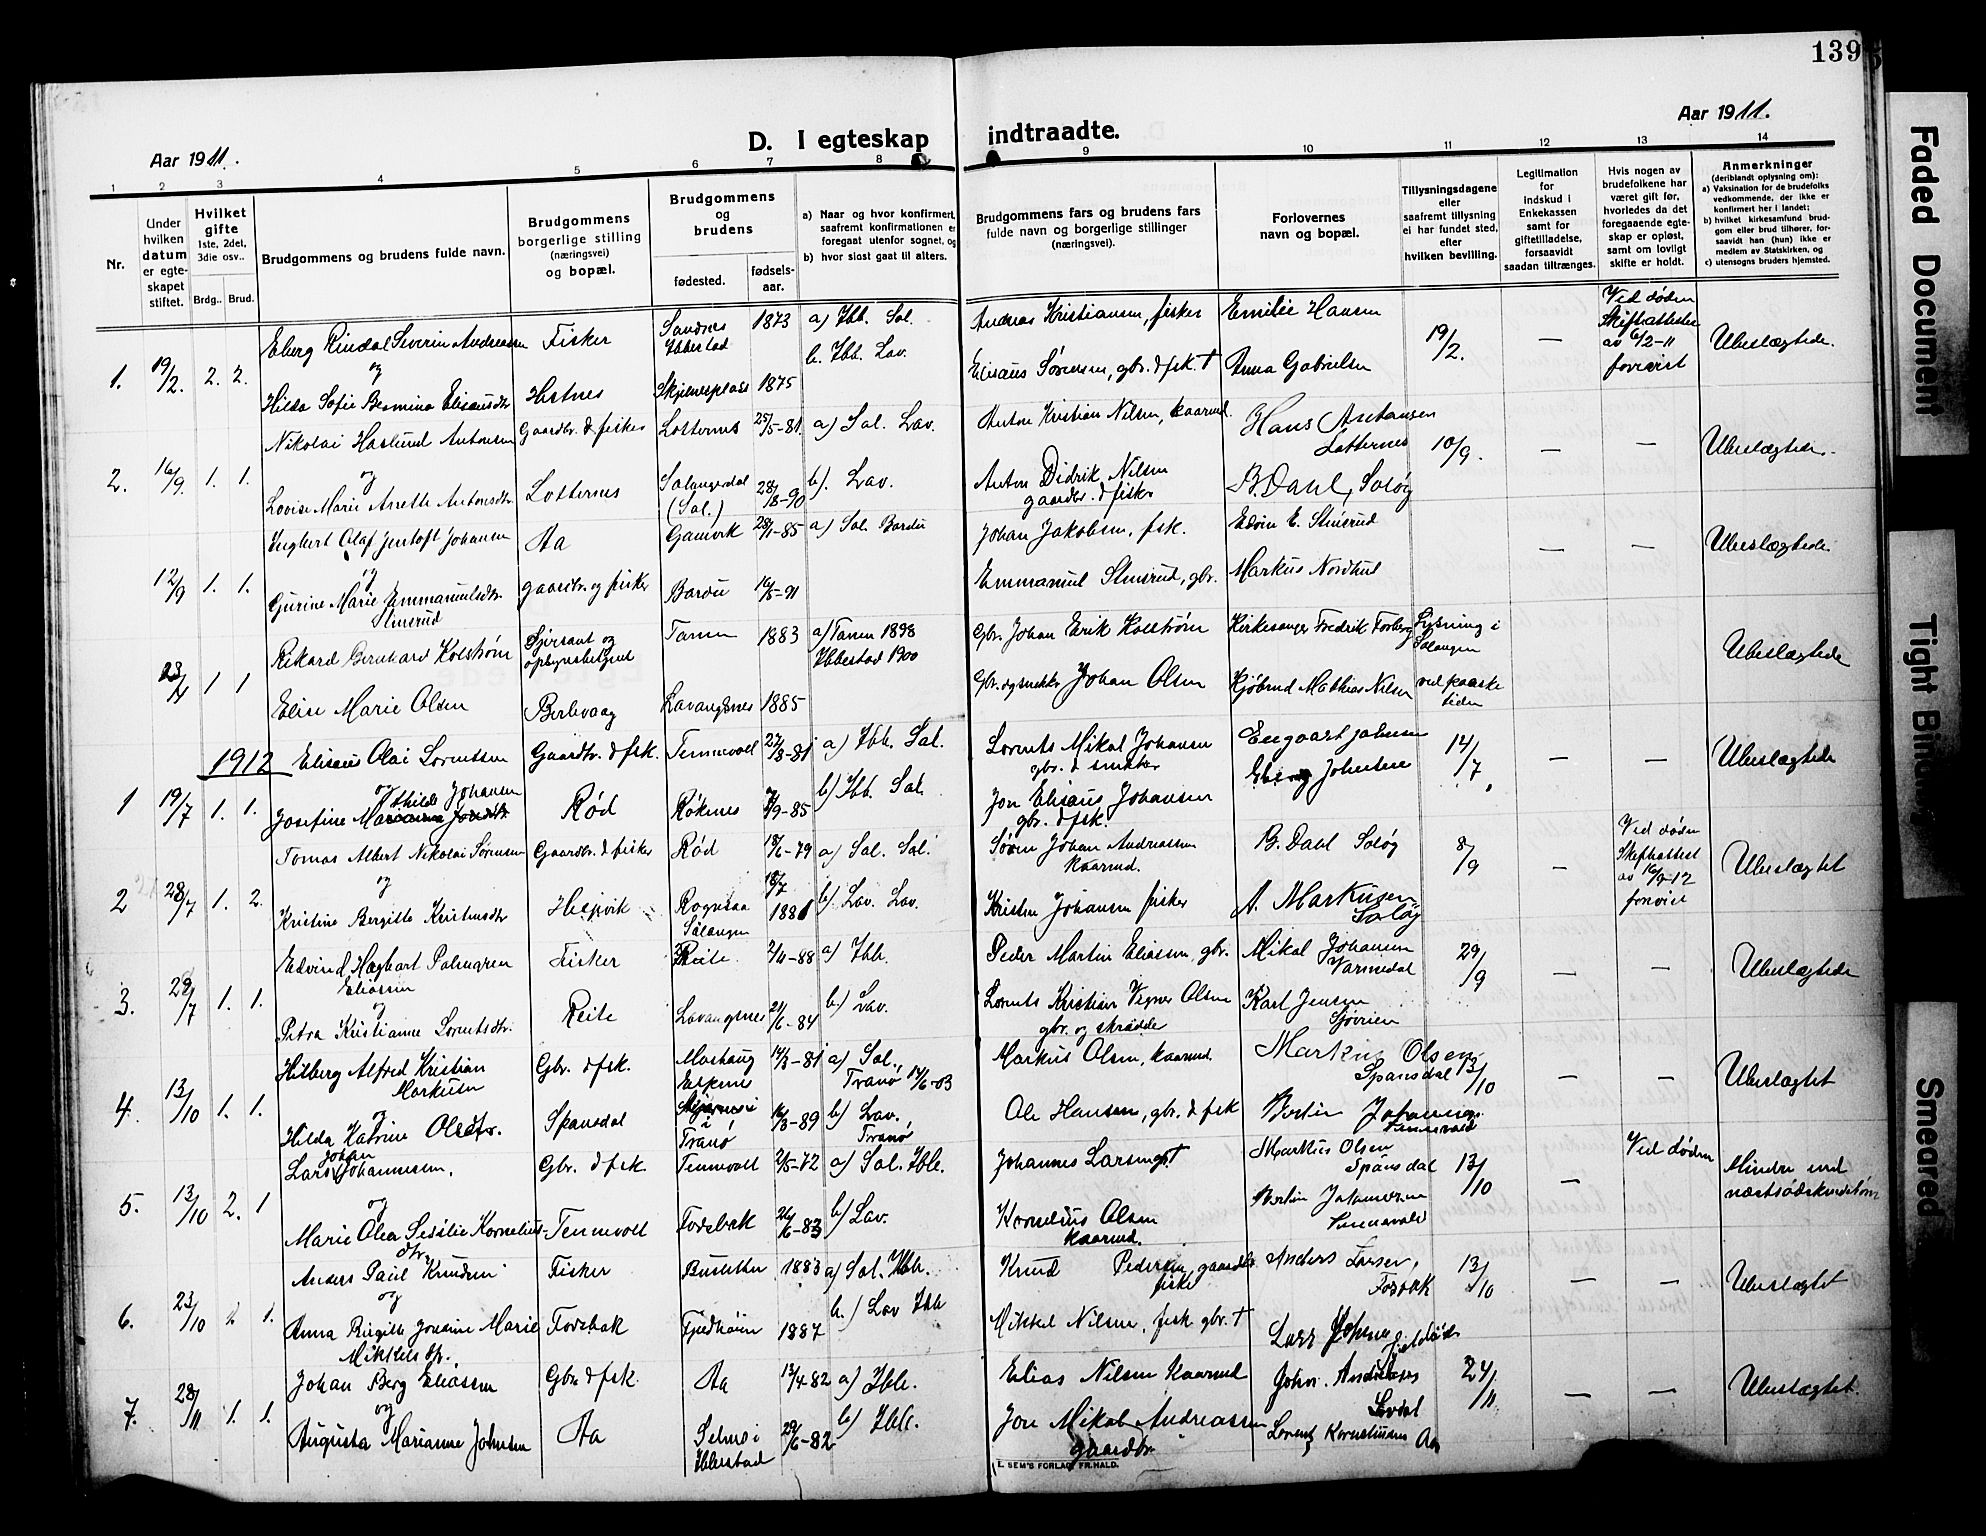 139
Aar 1911.
D. I egteskap indtraadte.
Aar 1911.
1 2 3 4 5 6 7 8 9 10 11 12 13 14
Nr.
Under hvilken datum er egteskapet stiftet.
Hvilket gifte
1ste, 2det, 3die osv..
Brdg.. Brud.
Brudgommens og brudens fulde navn.
Brudgommens borgerlige stilling (næringsvei) og bopæl.
Brudgommens og brudens
fødested.
fødsels-aar.
a) Naar og hvor konfirmert, saafremt konfirmationen er foregaat utenfor sognet, og
b) hvor sidst gaat til alters.
Brudgommens fars og brudens fars fulde navn og borgerlige stillinger (næringsvei).
Forlovernes navn og bopæl.
Tillysningsdagene eller saafremt tillysning ei har fundet sted, efter hvilken bevilling.
Legitimation for indskud i Enkekassen samt for giftetilladelse, forsaavidt saadan tiltrænges.
Hvis nogen av brudefolkene har været gift før, hvorledes da det foregaaende egteskap er opløst, samt om lovligt skifte er holdt.
Anmerkninger
(deriblandt oplysning om):
a) Vaksination for de brudefolks vedkommende, der ikke er konfirmert her i landet;
b) hvilket kirkesamfund brudgom eller brud tilhører, forsaavidt han (hun) ikke er medlem av Statskirken, og
c) utensogns bruders hjemsted.
1. 19/2. 2. 2.
Eberg Rindal Severin Andreassen
og
Hilda Sofie Bermina Elisæusdtr
Fisker
Hestnes
Sandnes Ibbestad 1873
1875
a) Ibb. Sal.
b. Ibb. Lav.
Andreas Kristiansen, fisker
Elisæus Sørensen, gbr. & fsk. †
Emilie Hansen
Anna Gabrielsen
19/2.
—
Ved døden Skifteattester av 6/2-11 forevist
Ubeslægtede.
2. 16/9. 1. 1.
Nikolai Haslund Antonsen
og
Lovise Marie Anette Antonsdtr.
Gaardbr. & fisker
Lotternes
Lotternes 25/5-81.
Salangsdal (Sal.) 28/8-90
a) Sal. Lav.
b). Lav.
Anton Kristian Nilsen, kaarmd.
Anton Didrik Nilsen gaardbr. & fisker
Hans Antonsen Lotternes
B. Dahl, Soløy
10/9.
— —
Ubeslægtede.
12/9 1. 1.
Ingbert Olaf Jentoft Johansen
og
Gurine Marie Emmanuelsdtr. Stensrud
Aa
gaardbr. og fisker
Gamvik 28/1-85
Bardu 16/5-91
a) Sal. Bardu
Johan Jakobsen, fsk.
Emmanuel Stensrud, gbr.
Edvin E. Stensrud
Markus Nordhus
— —
Ubeslægtede.
23/4 1 1
Rikard Bernhard Kolstrøm
Elise Marie Olsen
Sjersant og opsynsbetjent
Berlevaag
Tanen 1883
Lavangsnes 1885
a) Tanen 1898
Ibbestad 1900
Gbr. Johan Erik Kolstrøm
Gbr. og snekker Johan Olsen
Kirkesanger Fredrik Forberg
Kjøbmd Mathias Nilsen
Lysning i Salangen
ved paasketiden
Ubeslægtede
1912
1 19/7 1. 1.
Elisæus Olai Lorentsen
og
Josefine Mathilde Johansen
Gaardbr. & fsk.
Rød
Tennevoll 27/8-81
Røknes 7/9-85
a) Ibb. Sal.
b) Ibb. Sal.
Lorents Mikal Johansen gbr. & snekker
Jon Elisæus Johansen gbr. & fsk.
14/7
— —
Ubeslægtede
2 28/7 1. 2.
Tomas Albert Nikolai Sørensen
og
Kristine Bergitte Kristensdtr
Gaardbr. & fisker
Hesjevik
Rød 18/6-79
Rognsaa Salangen 18/7 1881
a) Sal. Sal.
b) Lav. Lav.
Søren Johan Andreassen kaarmd.
Kristen Johansen fisker
B. Dahl Soløy
A. Markusen Soløy
8/9
—
Ved døden Skifteattest av 16/9-12 forevist
Ubeslægtet
3. 29/7 1. 1.
Edvind Hagbart Palmgren Eliassen
og
Petra Kristianne Lorentsdtr.
Fisker
Reite
Reite 2/11-88
Lavangsnes 21/6-84
a) Ibb.
b) Lav.
Peder Martin Eliassen, gbr.
Lorents Kristian Vigner Olsen gbr. og skrædder
Mikal Johansen
Karl Jensen Sjøveien
29/9
— —
Ubeslægtede
4. 13/10 1. 1.
Hilberg Alfred Kristian Markusen
og
Hilda Katrine Olsdtr.
Gbr. & fsk.
Spansdal
Moshaug 14/3-81
i Tranø 16/3-89
a) Sal. Tranø 14/6-03
b) Lav. Tranø
Markus Olsen, kaarmd.
Ole Hansen, gbr. & fsk
Markus Olsen Spansdal
Bertin Johannesen Tennevold
13/10
— —
Ubeslægtet
5. 13/10 2. 1
Lars Johan Johannessen.
og
Marie Olea Sesilie Korneliusdtr.
Gbr. & fsk.
Tennevoll
Tennevoll 2/5-72
Fosbak 26/6-83
a) Sal. Ibb.
b) Lav.
Johannes Larsen †
Kornelius Olsen kaarmd.
Markus Olsen Spansdal
Bertin Johannesen Tennevold
13/10
—
Ved døden
Mindre end næstsødskendebørn
6. 23/10 1. 1.
Anders Paul Knudsen
og
Anna Birgitte Josefine Marie Mikkelsdtr.
Fisker
Fosbak
1883
1887
a) Sal. Ibb.
b.) Lav Ibb
Knud Pedersen, gaardbr. fisker
Mikkel Nilsen, fisk. gbr. †
Anders Larsen, Fosbak
Lars
13/10
— —
Ubeslægtet
7. 28/11 1. 1.
Johan Berg Eliassen
og
Augusta Marianne Johnsen
Gbr. & fsk.
Aa
Aa 17/4-82
Selnes i Ibbestad 29/6-82
a) Ibb.
b) Ibb.
Elias Nilsen Kaarmd
Jon Mikal Andreassen gaardbr.
John. Andreassen
Lorents Korneliussen Aa
24/11
— —
Ubeslægtet.
E. SEM'S FORLAG, FR.HALD.
Faded Document
Tight Binding
Smeared